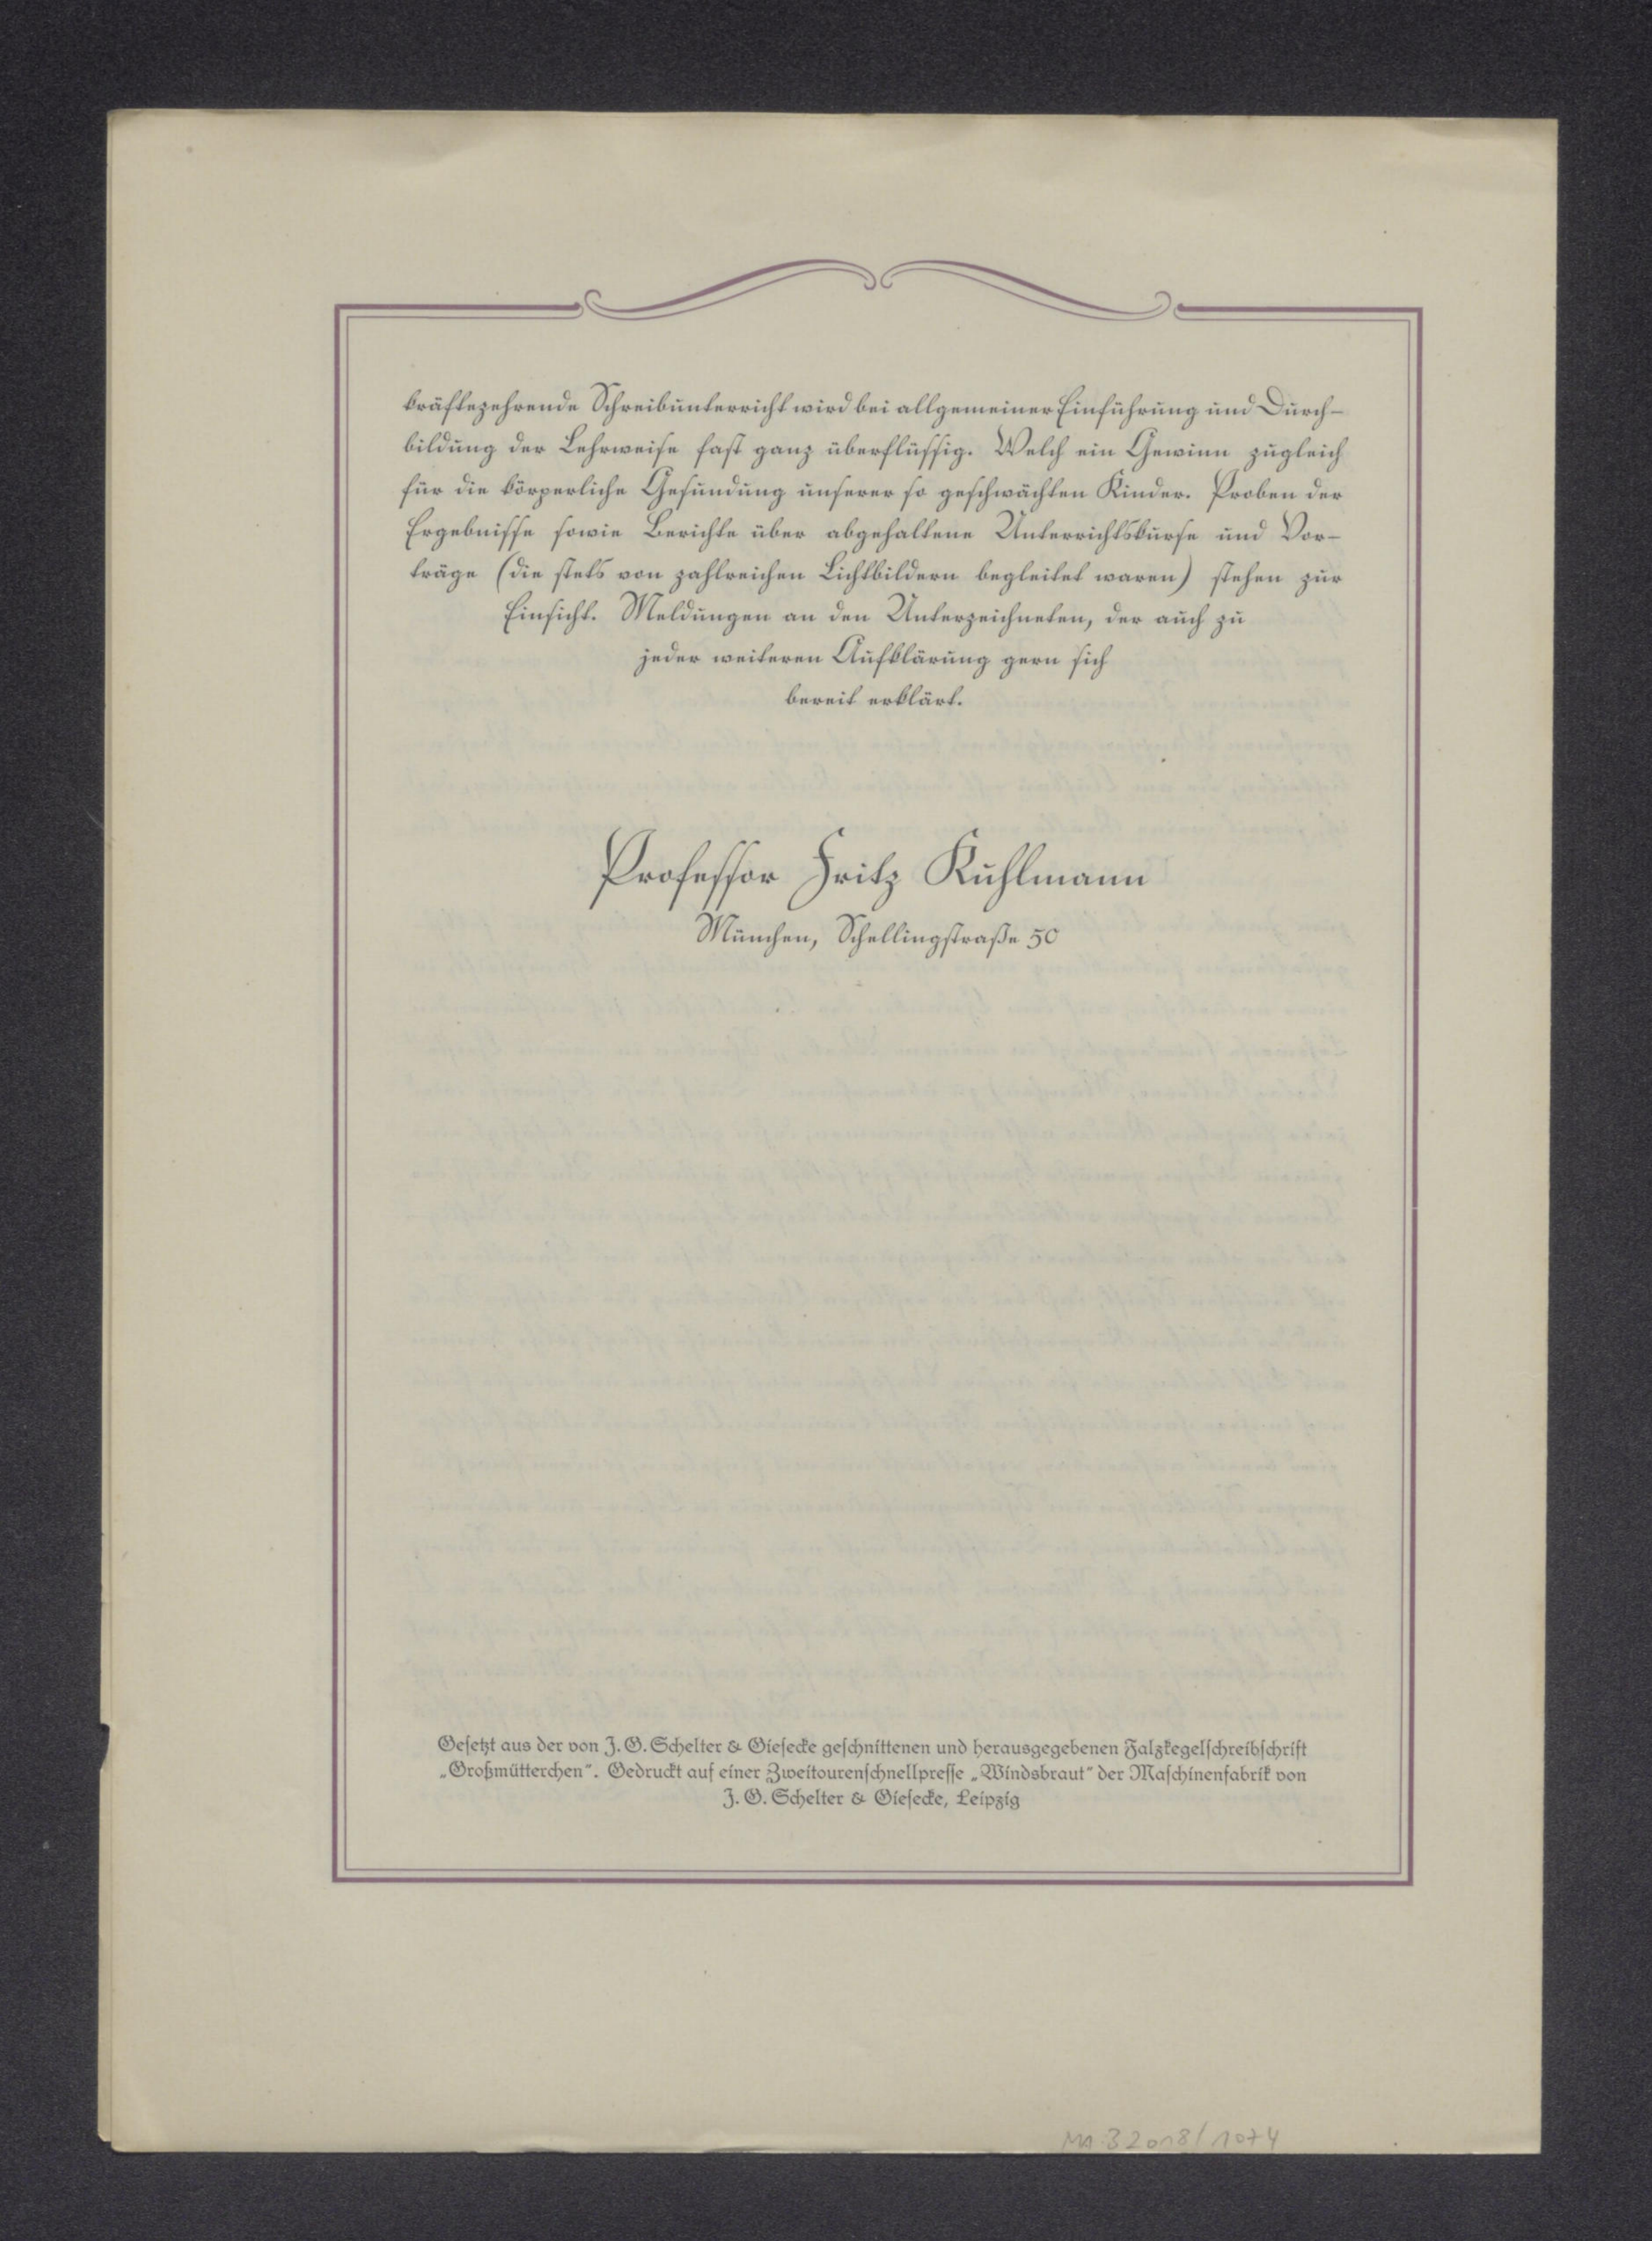 kräftezehrende Schreibunterricht wird bei allgemeiner Einführung und Durch-
bildung der Lehrweise fast ganz überflüssig. Welch ein Gewinn zugleich
für die körperliche Gesundung unserer so geschwächten Kinder. Proben der
Ergebnisse sowie Berichte über abgehaltene Unterrichtskurse und Vor-
träge (die stets von zahlreichen Lichtbildern begleitet waren) stehen zur
Einsicht. Meldungen an den Unterzeichneten, der auch zu
jeder weiteren Aufklärung gern sich
bereit erklärt.
Professor Fritz Kuhlmann
München, Schellingstraße 50
Gesetzt aus der von J. G. Schelter & Giesecke geschnittenen und herausgegebenen Falzkegelschreibschrift
„Großmütterchen“. Gedruckt auf einer Zweitourenschnellpresse „Windsbraut“ der Maschinenfabrik von
J. G. Schelter & Giesecke, Leipzig
MA B 2018/1074